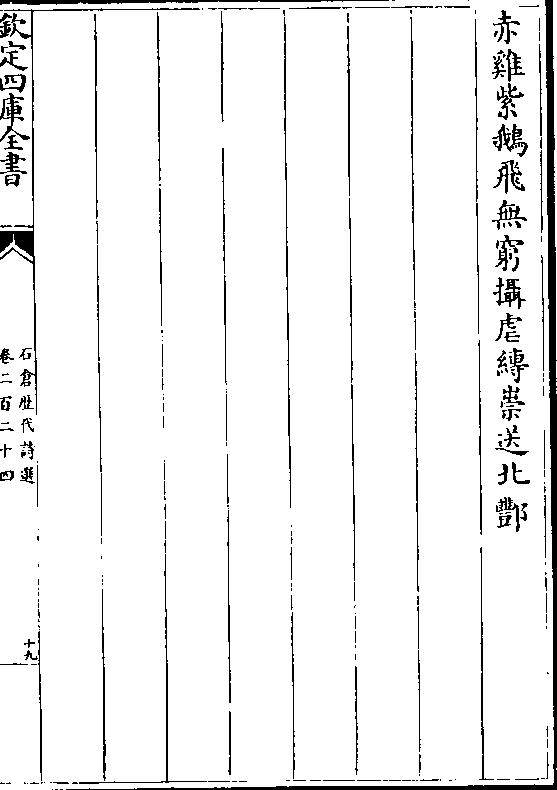 赤雞紫鵝飛無窮攝虐縳祟送北酆
欽定四庫全書
石倉歴代詩選
卷二百二十四
十九